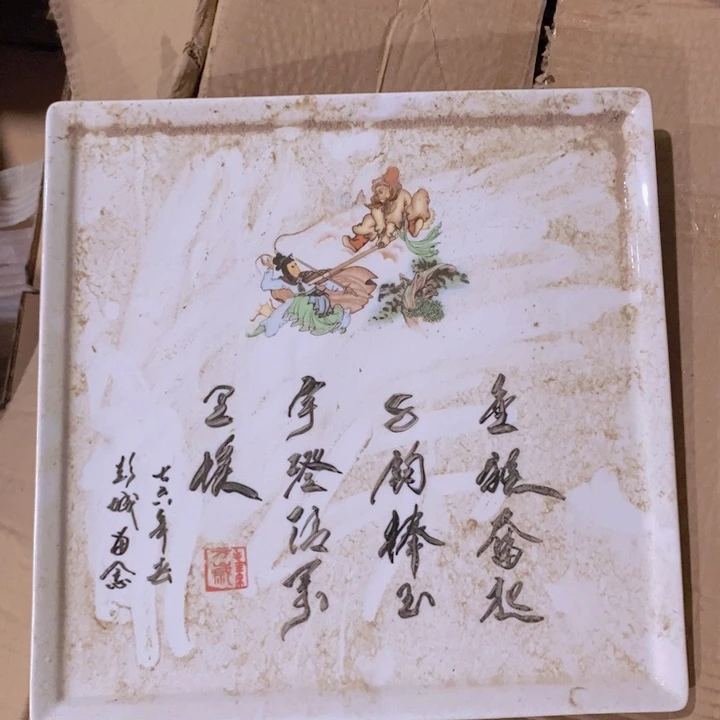 金猴奮起
千鈞棒玉
宇澄清萬
里埃
七六年
彭城留念